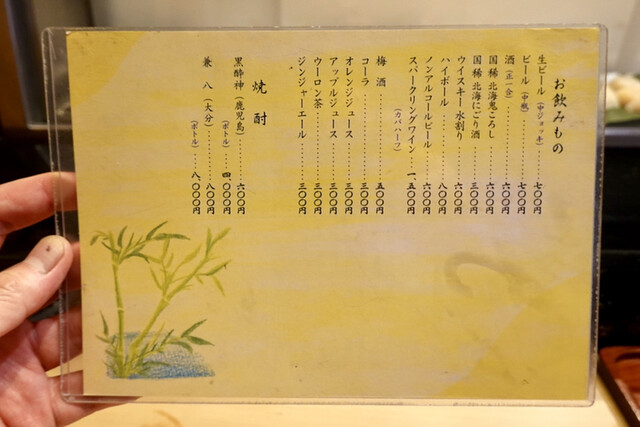 お飲みもの
生ビール（中ジョッキ）……七〇〇円
ビール（中瓶）……七〇〇円
酒（正一合）……六〇〇円
国稀 北海鬼ころし……六〇〇円
国稀 北海にごり酒……三〇〇円
ウイスキー水割り……六〇〇円
ハイボール……八〇〇円
ノンアルコールビール……六〇〇円
スパークリングワイン……一、五〇〇円
（カバハーフ）
梅酒……五〇〇円
コーラ……三〇〇円
オレンジジュース……三〇〇円
アップルジュース……三〇〇円
ウーロン茶……三〇〇円
ジンジャーエール……三〇〇円
焼酎
黒酔神（鹿児島）……六〇〇円
（ボトル）……四、〇〇〇円
兼八（大分）……八〇〇円
（ボトル）……八、〇〇〇円